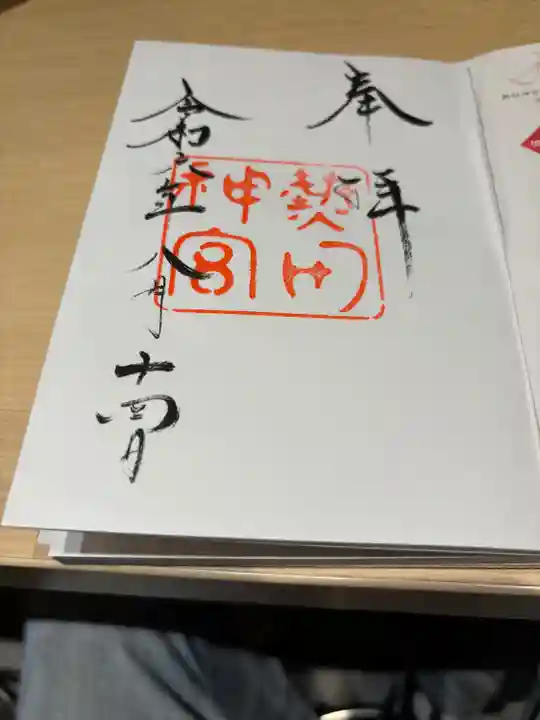 奉拝
熱田
神宮
令和年八月十四日